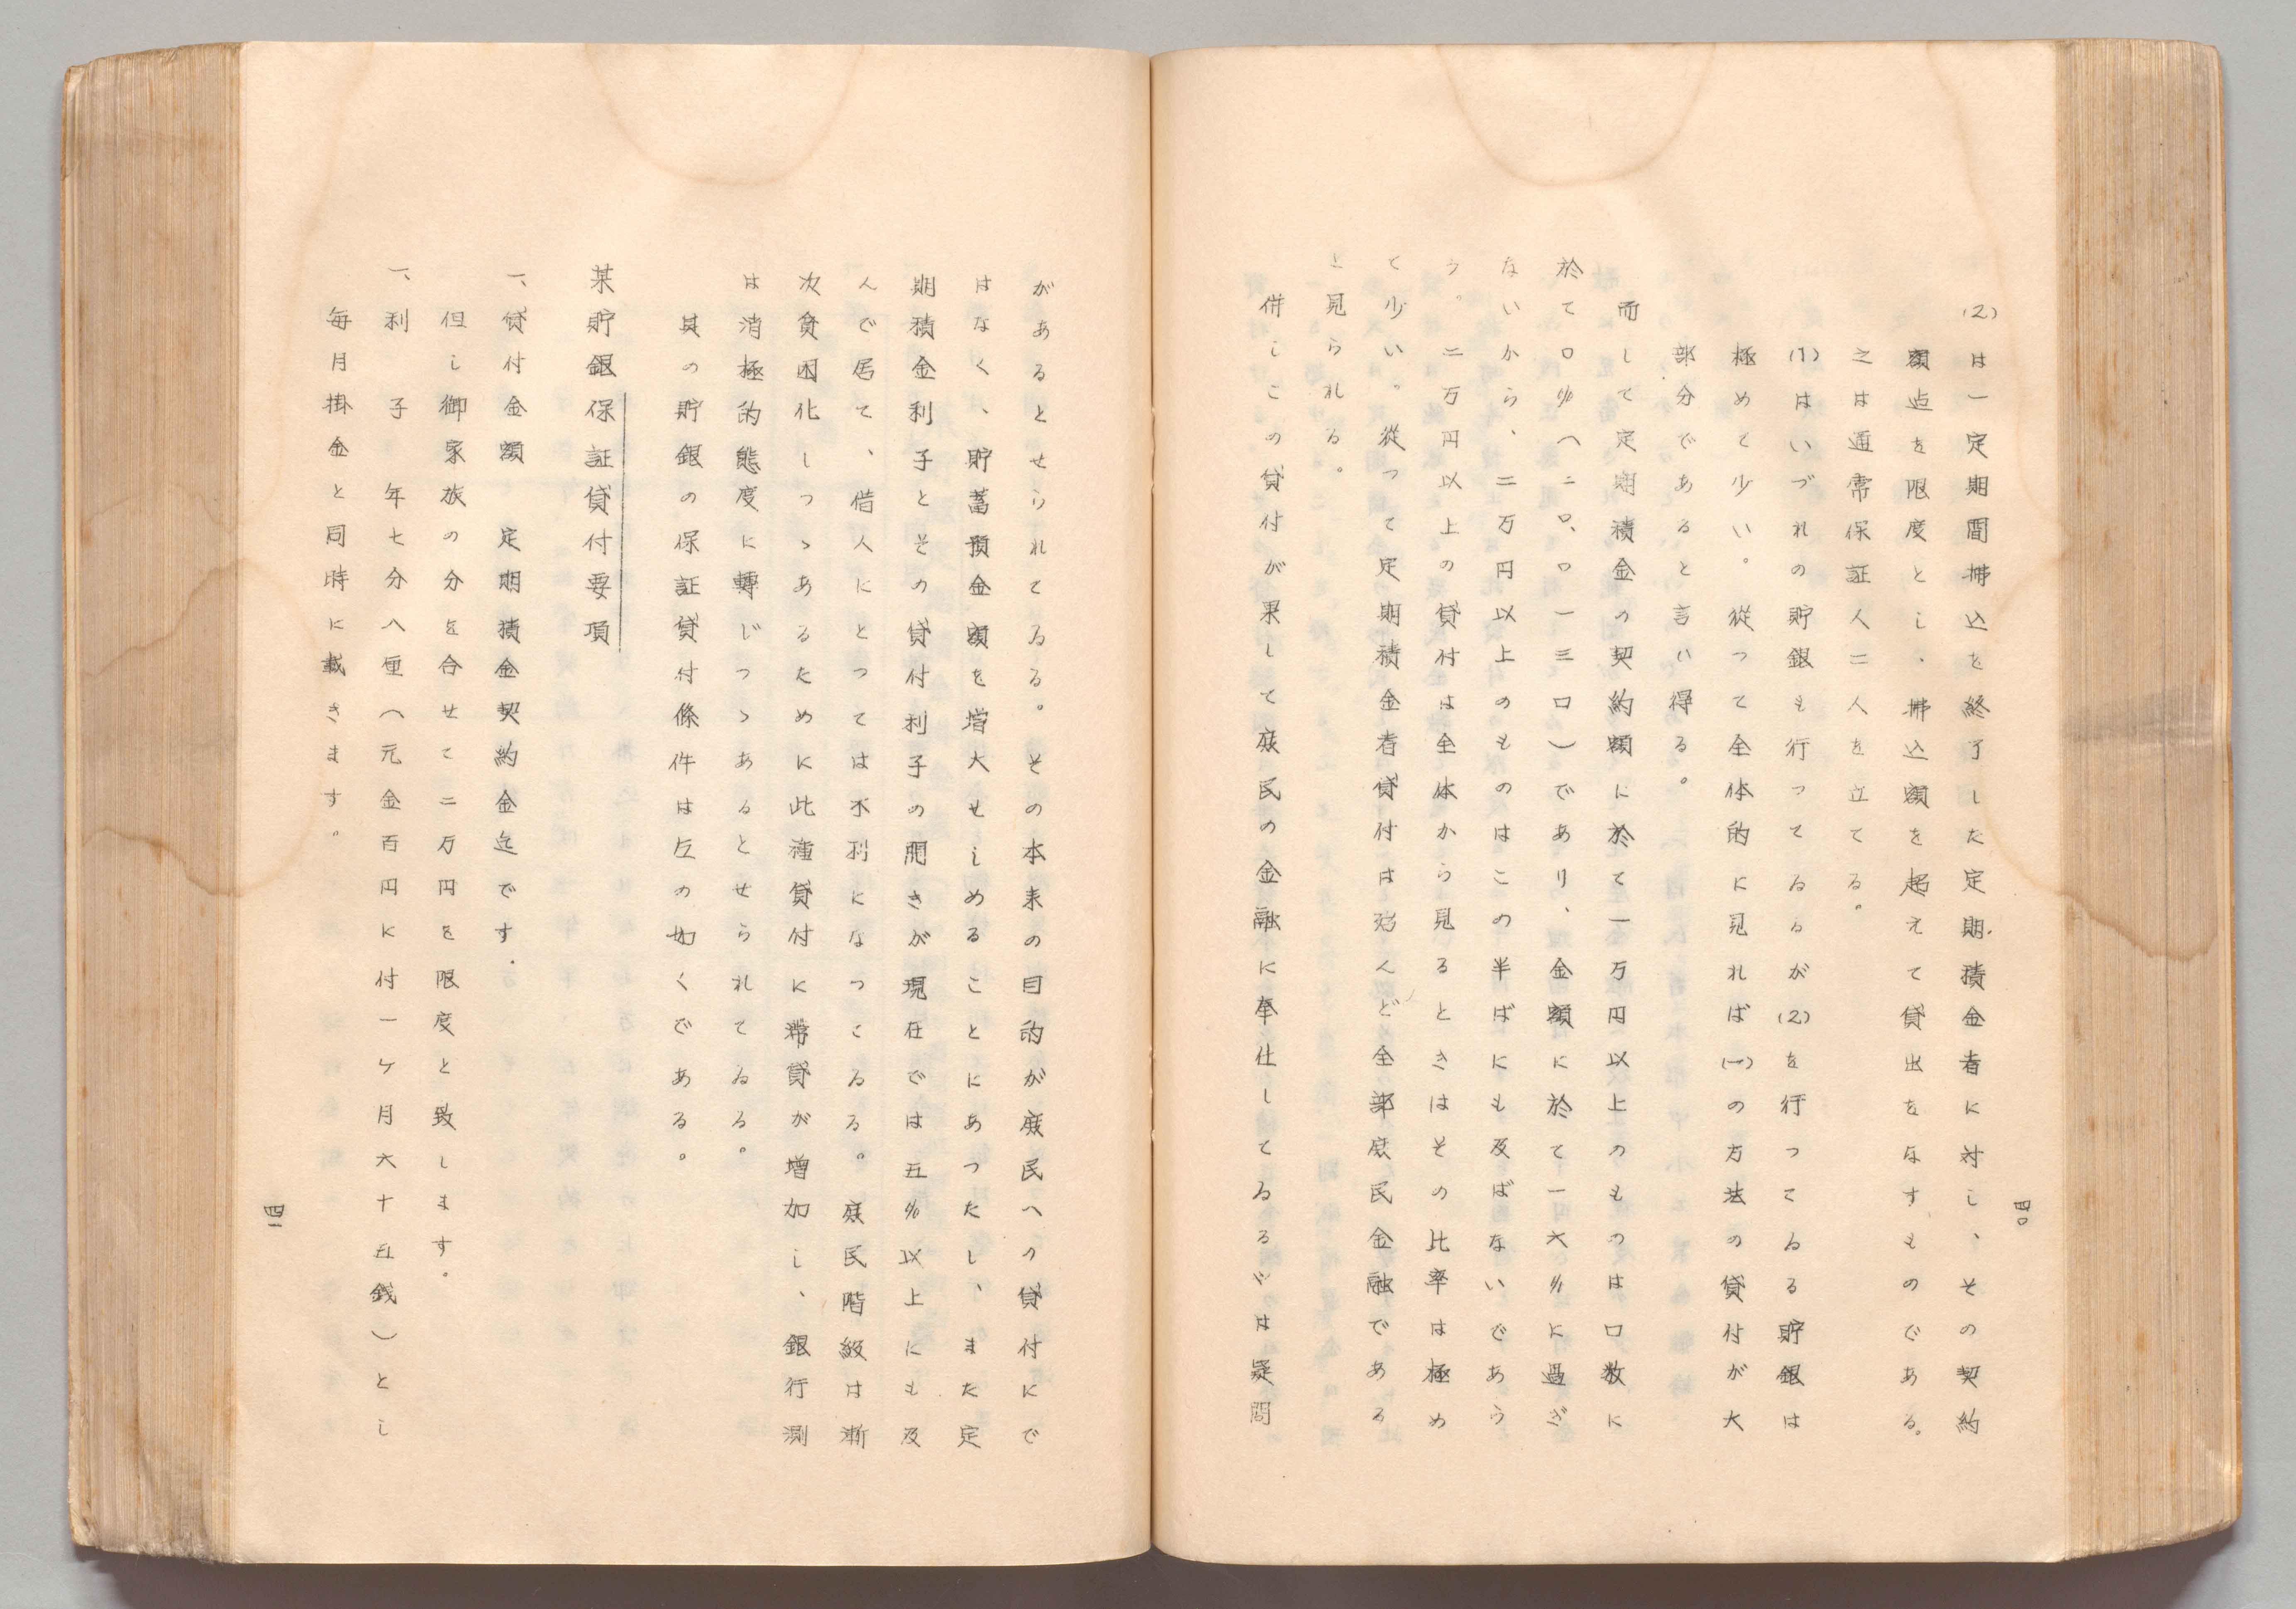 (2)は一定期間拂込を終了した定期積金者に対し、その契約
額迠を限度とし、拂込額を超えて貸出をなすものである。
之は通常保証人二人を立てる。
(1)はいづれの貯銀も行つてゐるが(2)を行つてゐる貯銀は
極めて少い。従つて全体的に見れば(一)の方法の貸付が大
部分であると言ひ得る。
而して定期積金の契約額に於て一万円以上のものは口数に
於て〇%(二〇、〇一三口)であり、金額に於て一六%に過ぎ
ないから、二万円以上のものはこの半ばにも及ばないであら
う。二万円以上の貸付は全体から見るときはその比率は極め
て少い。従つて定期積金者貸付は殆んど全部庶民金融である
と見られる。
併しこの貸付が果して庶民の金融に奉仕してゐるゕは疑問
四〇
があるとせられてゐる。その本来の目的が庶民への貸付にで
はなく、貯蓄預金額を増大せしめることにあつたし、また定
期積金利子とその貸付利子の開きが現在では五%以上にも及
んで居て、借人にとつては不利になつてゐる。庶民階級は漸
次貧困化しつゝあるために此種貸付に滞貸が増加し、銀行測
は消極的態度に轉じつゝあるとせられてゐる。
其の貯銀の保証貸付條件は左の如くである。
某貯銀保証貸付要項
一、貸付金額 定期積金契約金迄です.
但し御家族の分を合せて二万円を限度と致します。
一、利子 年七分八厘(元金百円に付一ケ月六十五銭)とし
毎月掛金と同時に戴きます。
四一